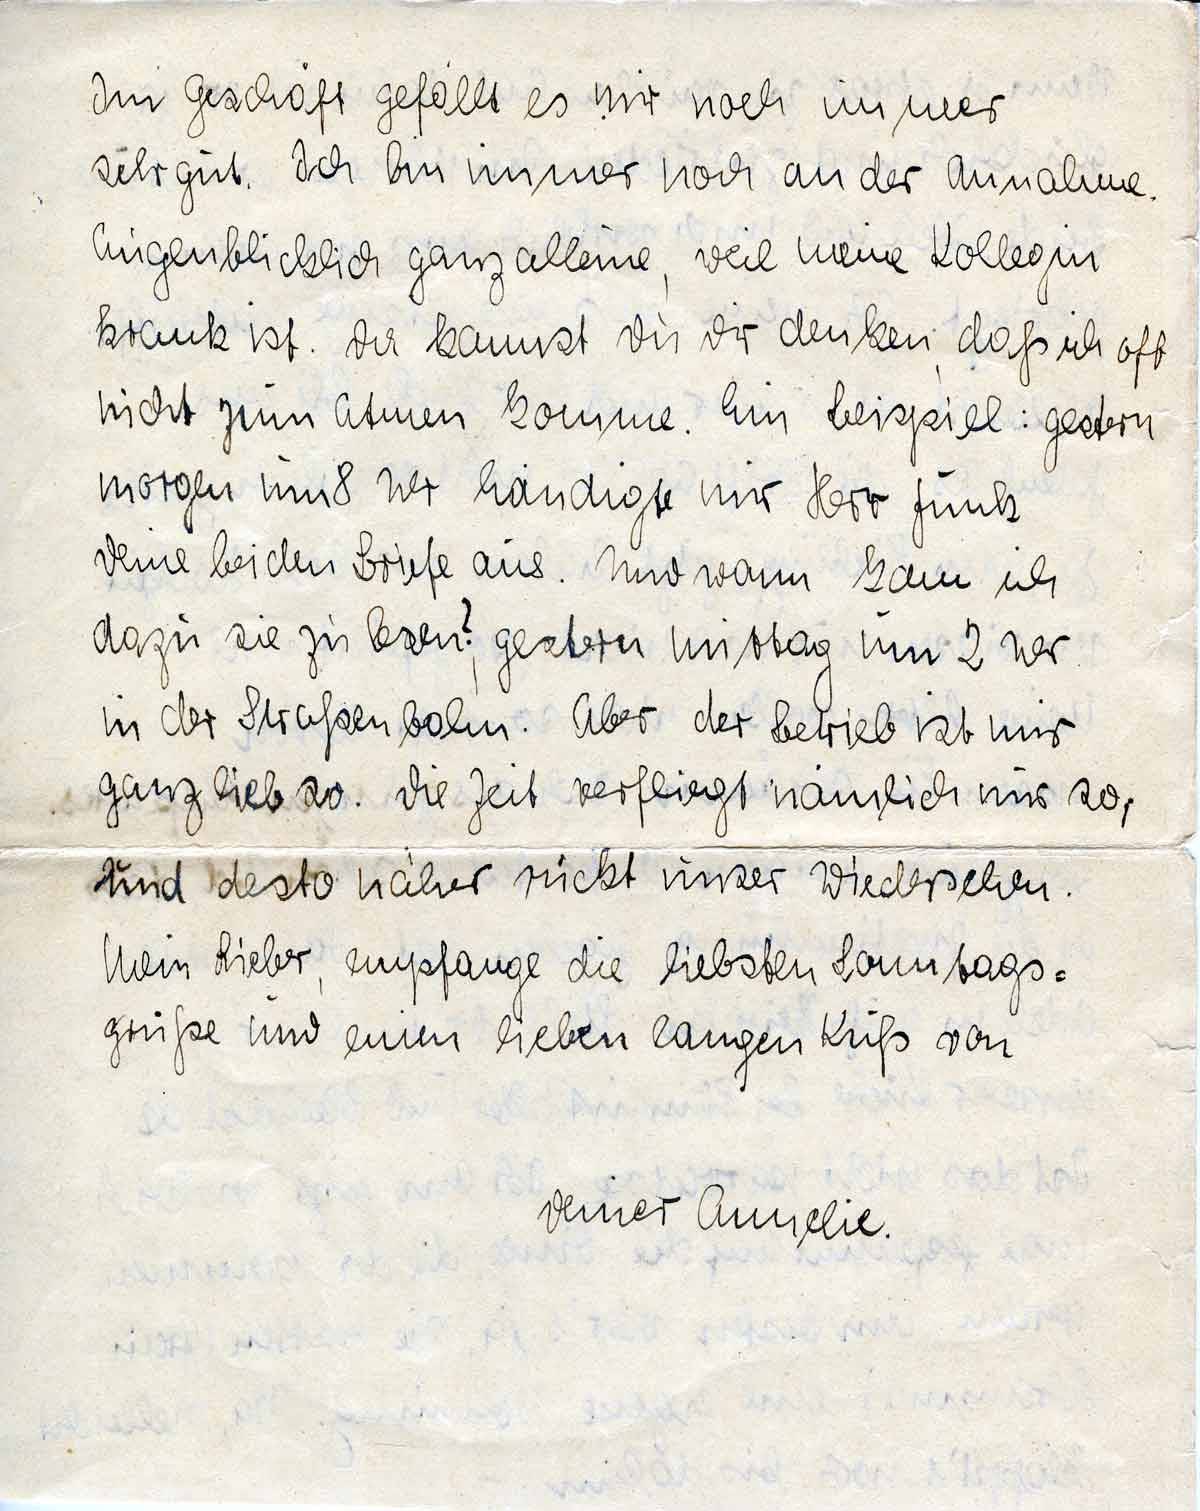 Im Geschäft gefällt es mir noch immer
sehr gut. Ich bin immer noch an der Annahme.
Augenblicklich ganz alleine, weil meine Kollegin
krank ist. Da kannst du dir denken, daß ich oft
nicht zum Atmen komme. Ein Beispiel: gestern
morgen um 8 Uhr händigte mir Herr Funk
deine beiden Briefe aus. Und wann kam ich
dazu sie zu lesen?, gestern mittag um 2 Uhr
in der Straßenbahn. Aber der Betrieb ist mir
ganz lieb so. Die Zeit verfliegt nämlich nur so,
und desto näher rückt unser Wiedersehen.
Mein Lieber, empfange die liebsten Sonntags=
grüße und einen lieben langen Kuß von
deiner Annelie.